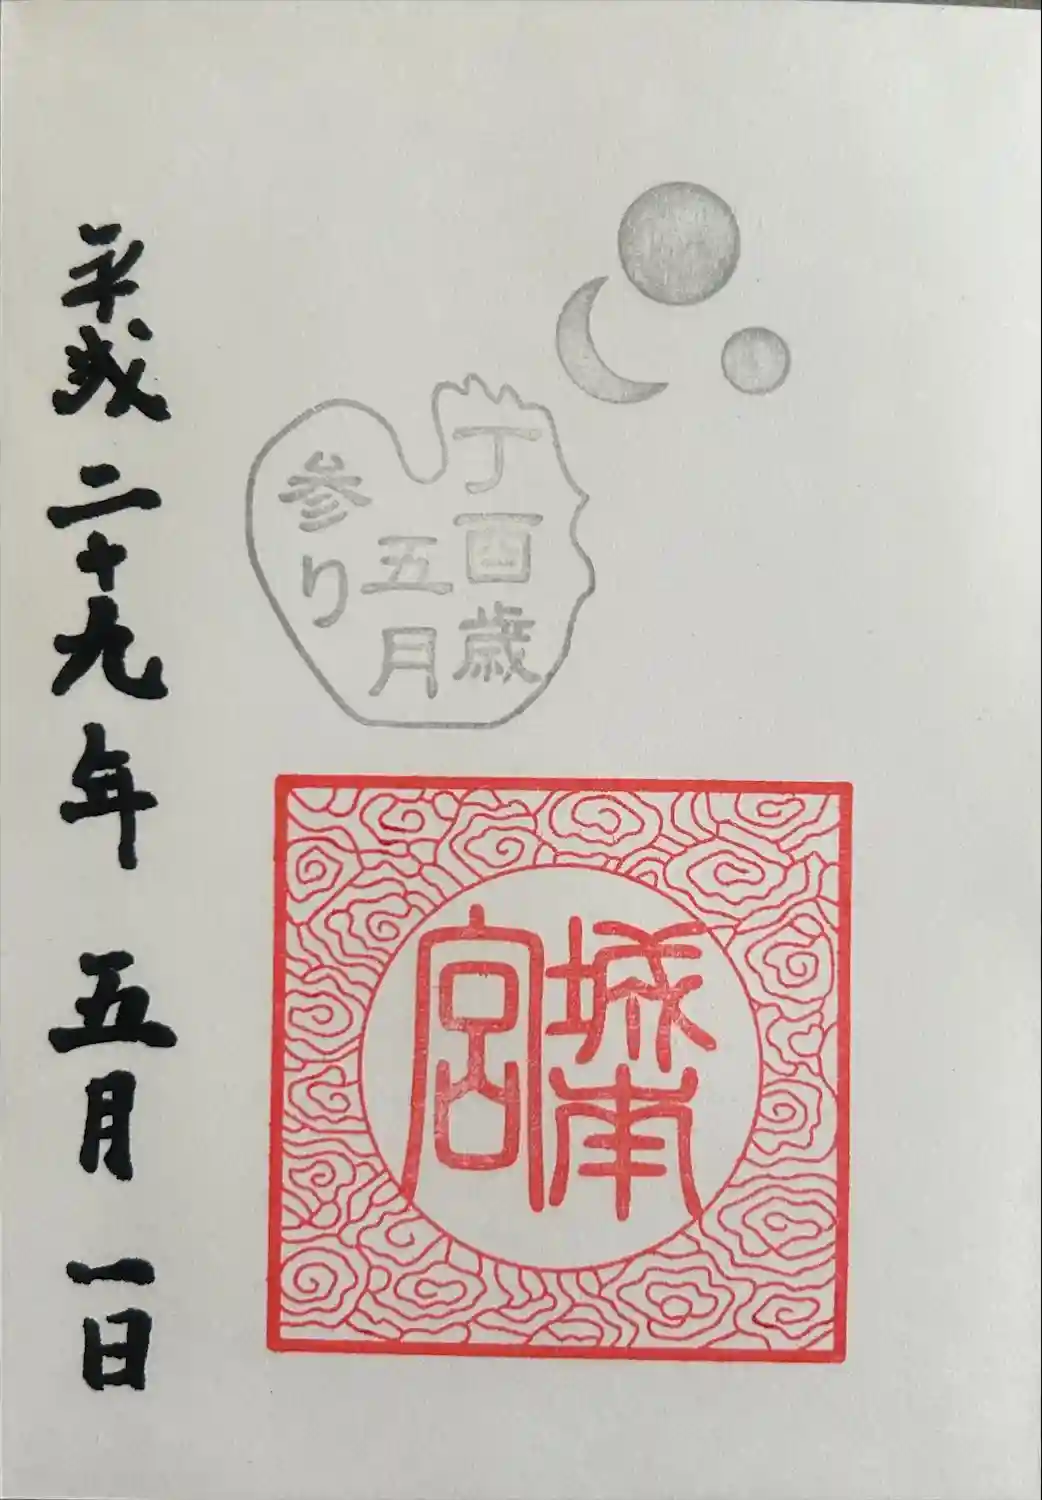 丁酉歳
五月
参り
城南
宮
平成二十九年 五月一日